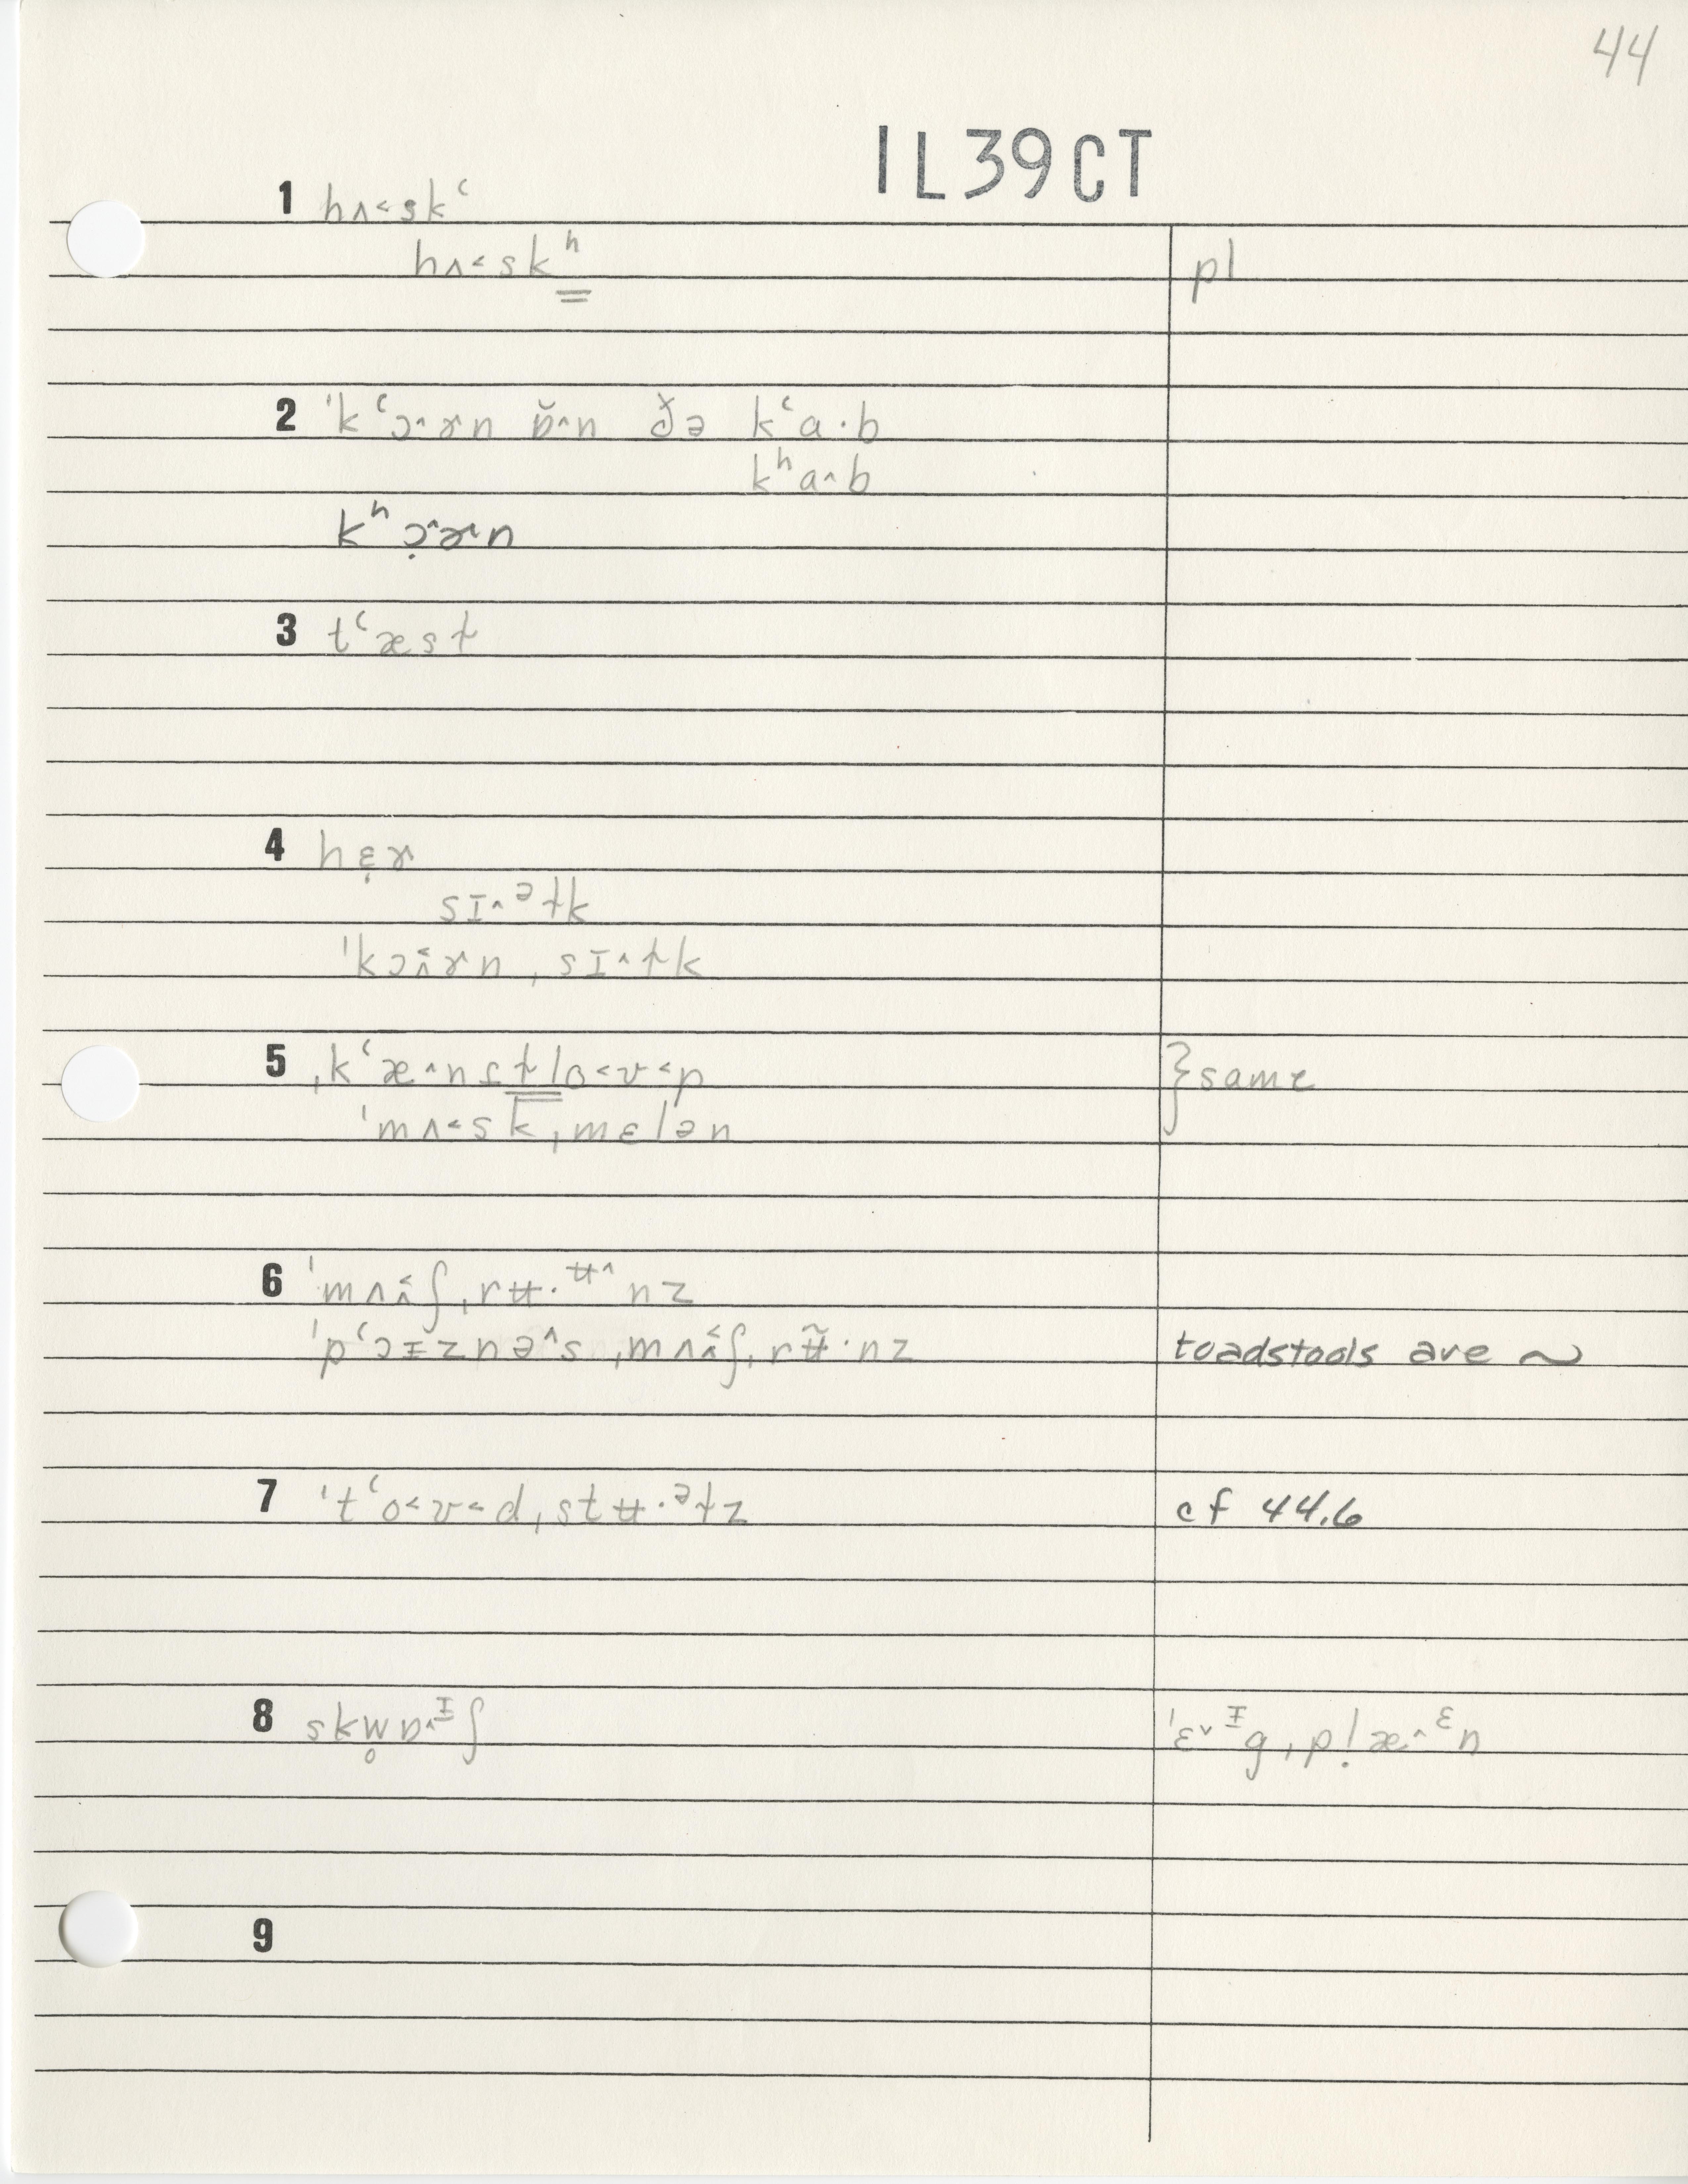 44
IL39CT
1 hʌ˂skʿ
hʌ˂skʰ pl
2 ˈkʿɔ˄ɚn ɒ̆˄n ðə kʿa·b
kʰa˄b
kʰɔ̣˄ɚn
3 tʿæst
4 hɛ̣ɚ
sɪ˄ᵊɫk
ˈkɔ˄̂ɚn ˌsɪ˄ɫk
5 ˌkʿæ˄nᵻɫlo˂ʊ˂p } same
ˈmʌ˂skˌmɛlən
6 ˈmʌʌ̂˂ʃˌrʉ·ᶶ˄nz
ˈpʿɔᵻznə˄s ˌmʌʌ̂˂ʃˌrʉ̃·nz toadstools are ~
7 ˈtʿo˂ʊ˂dˌstʉ·ᵊɫz cf 44.6
8 skw̥ɒ˄ᵻʃ ˈɛ˅ᵻgˌpl̥æ˄ᵋn
9